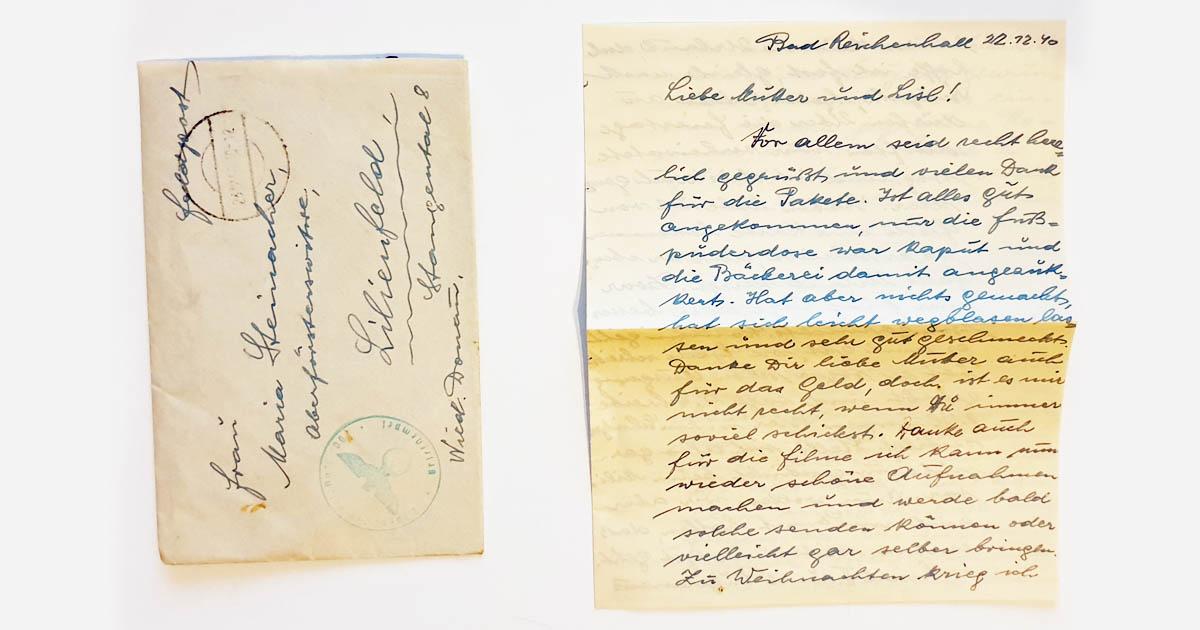 Feldpost
Frau
Maria Steinacher,
Oberförsterswitwe,
Lilienfeld
Stangental 8
Wied. Donau.
Bad Reichenhall 22.12.40
Liebe Mutter und Lisl!
Vor allem seid recht herz-
lich gegrüßt und vielen Dank
für die Pakete. Ist alles gut
angekommen, nur die Fuß-
puderdose war kaput und
die Bäckerei damit angezuk-
kert. Hat aber nichts gemacht,
hat sich leicht wegblasen las-
sen und sehr gut geschmeckt.
Danke Dir liebe Mutter auch
für das Geld, doch ist es mir
nicht recht, wenn Du immer
soviel schickst. Danke auch
für die Filme ich kann nun
wieder schöne Aufnahmen
machen und werde bald
solche senden können oder
vielleicht gar selber bringen.
Zu Weihnachten krieg ich